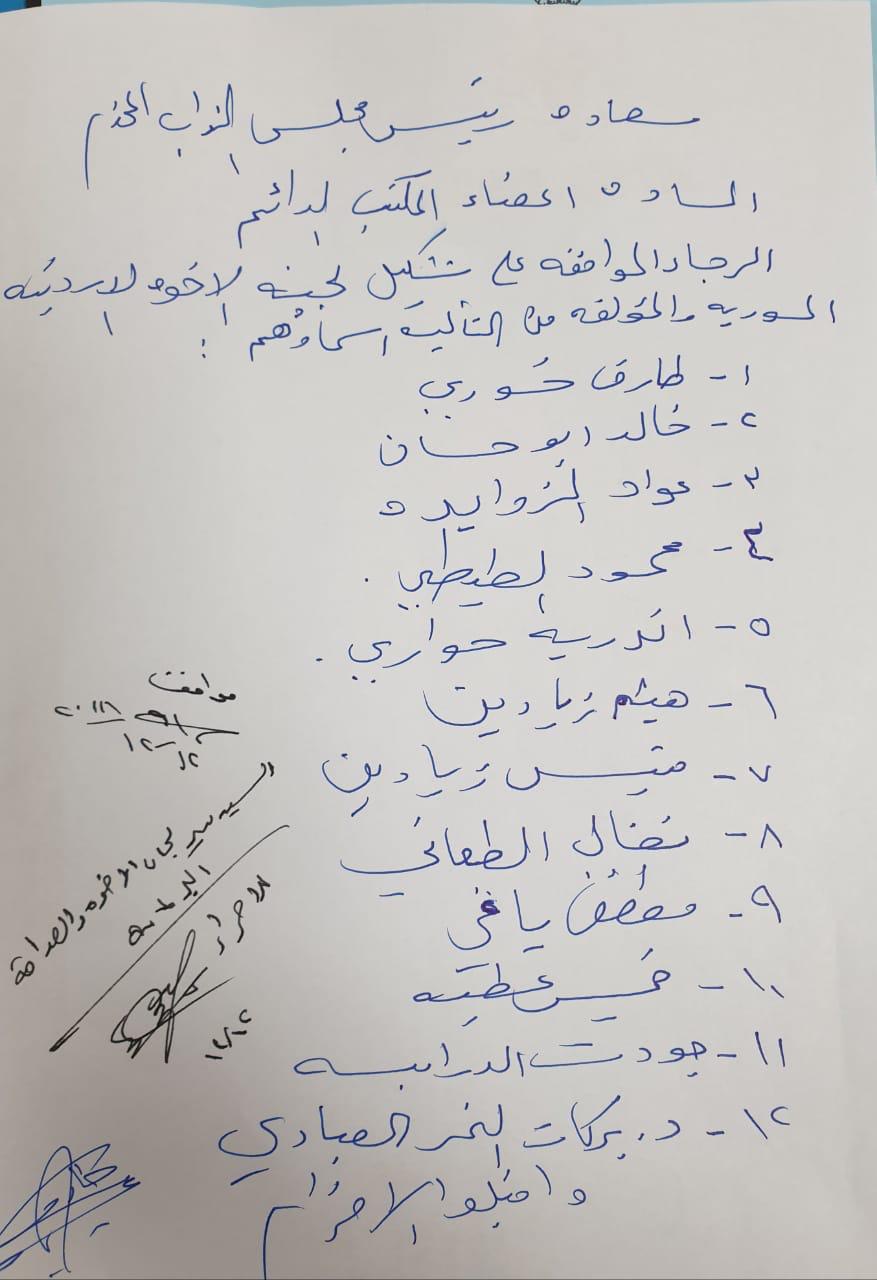 سعادة رئيس مجلس النواب المحترم
السادة اعضاء المكتب الدائم
الرجاء الموافقه على تشكيل لجنة الاخوه الاردنيه
السوريه والمؤلفه من التالية اسماؤهم :
١- طارق خوري
٢- خالد ابو حسان
٣- عواد الزوايده
٤- محمود الطيطي .
٥- اندريه حواري .
٦- هيثم زيادين
٧- قيس زيادين
٨- نضال الطعاني
٩- مصطفى ياغي
١٠- خميس عطيه
١١- جودت الدرابسه
١٢- د. بركات النمر العبادي
واقبلوا الاحترام
موافق
١٢-١٢
السيد مدير لجان الاخوه والصداقة
البرلمانية
للاجراء
١٢/١٢